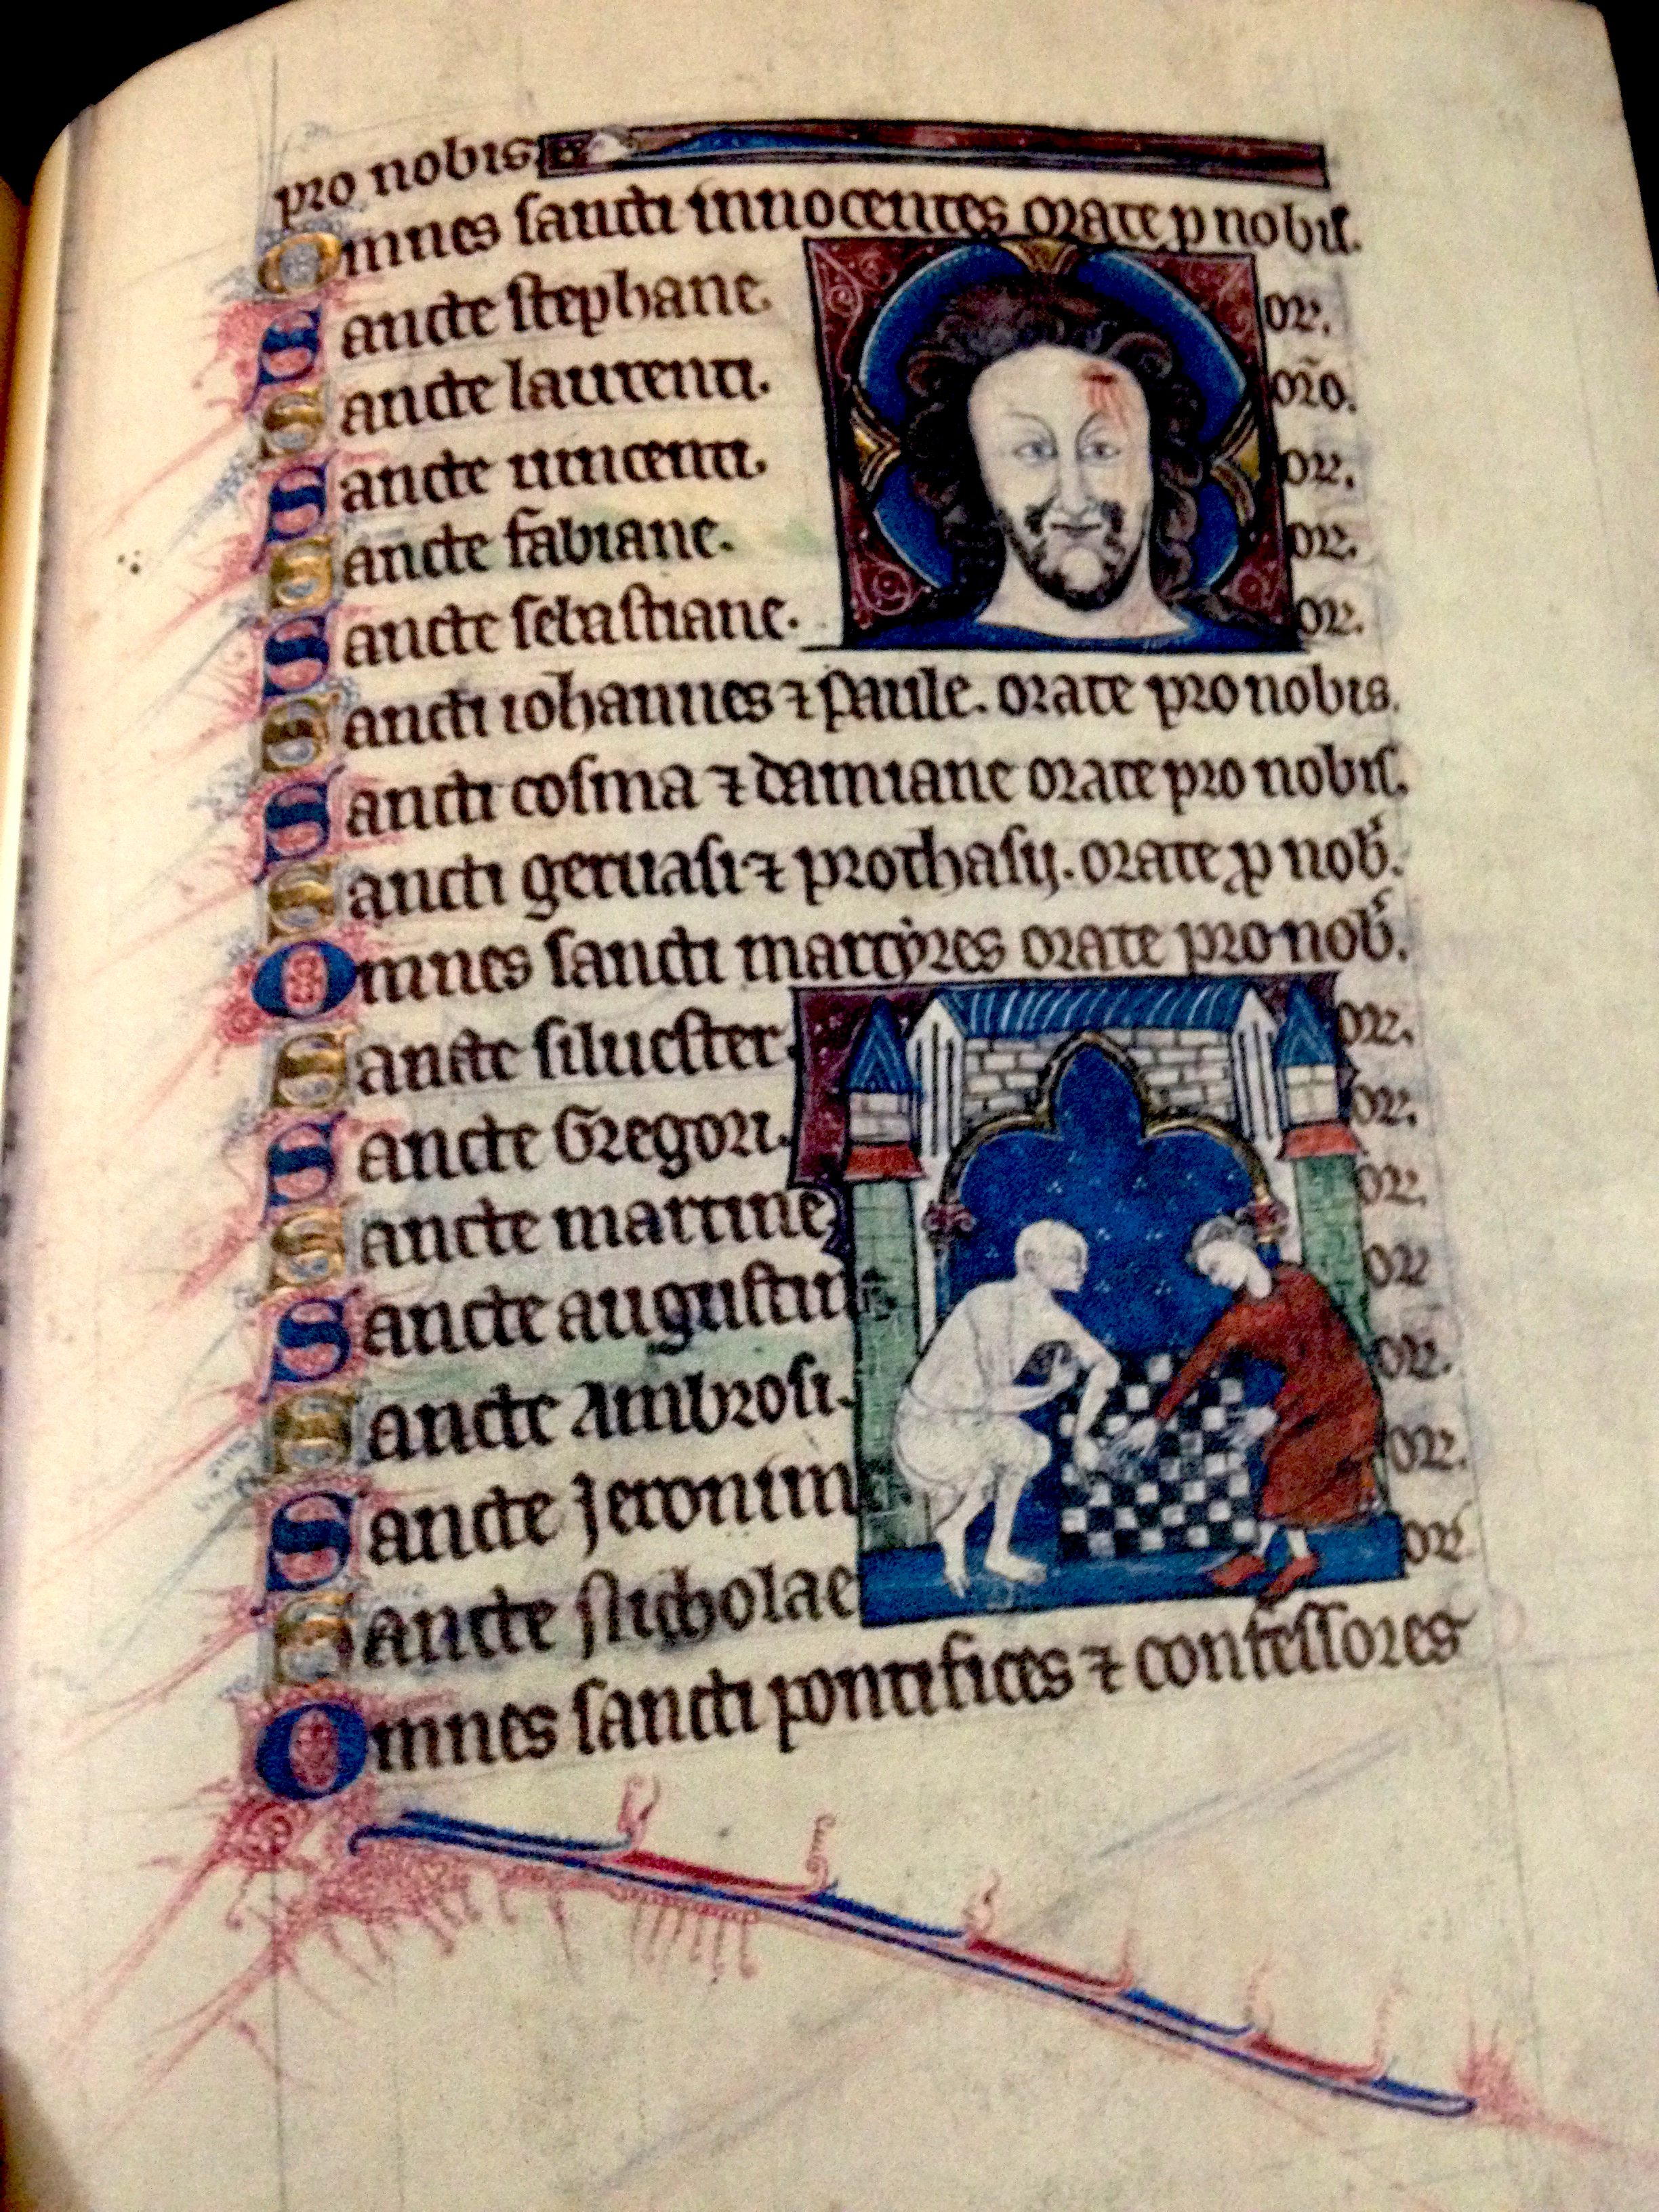 pro nobis.
Omnes sancti innocentes orate p nobis.
Sancte stephane. or.
Sancte laurenti. oro.
Sancte uincenti. or.
Sancte fabiane. or.
Sancte sebastiane. or.
Sancti iohannes ⁊ paule. orate pro nobis.
Sancti cosma ⁊ damiane orate pro nobis.
Sancti geruasi ⁊ prothasij. orate p nob.
Omnes sancti martyres orate pro nob.
Sancte siluester. or.
Sancte Gregori. or.
Sancte martine or.
Sancte augustin or
Sancte Ambrosi. or.
Sancte Jeronim or.
Sancte Nicholae or.
Omnes sancti pontifices ⁊ confessores